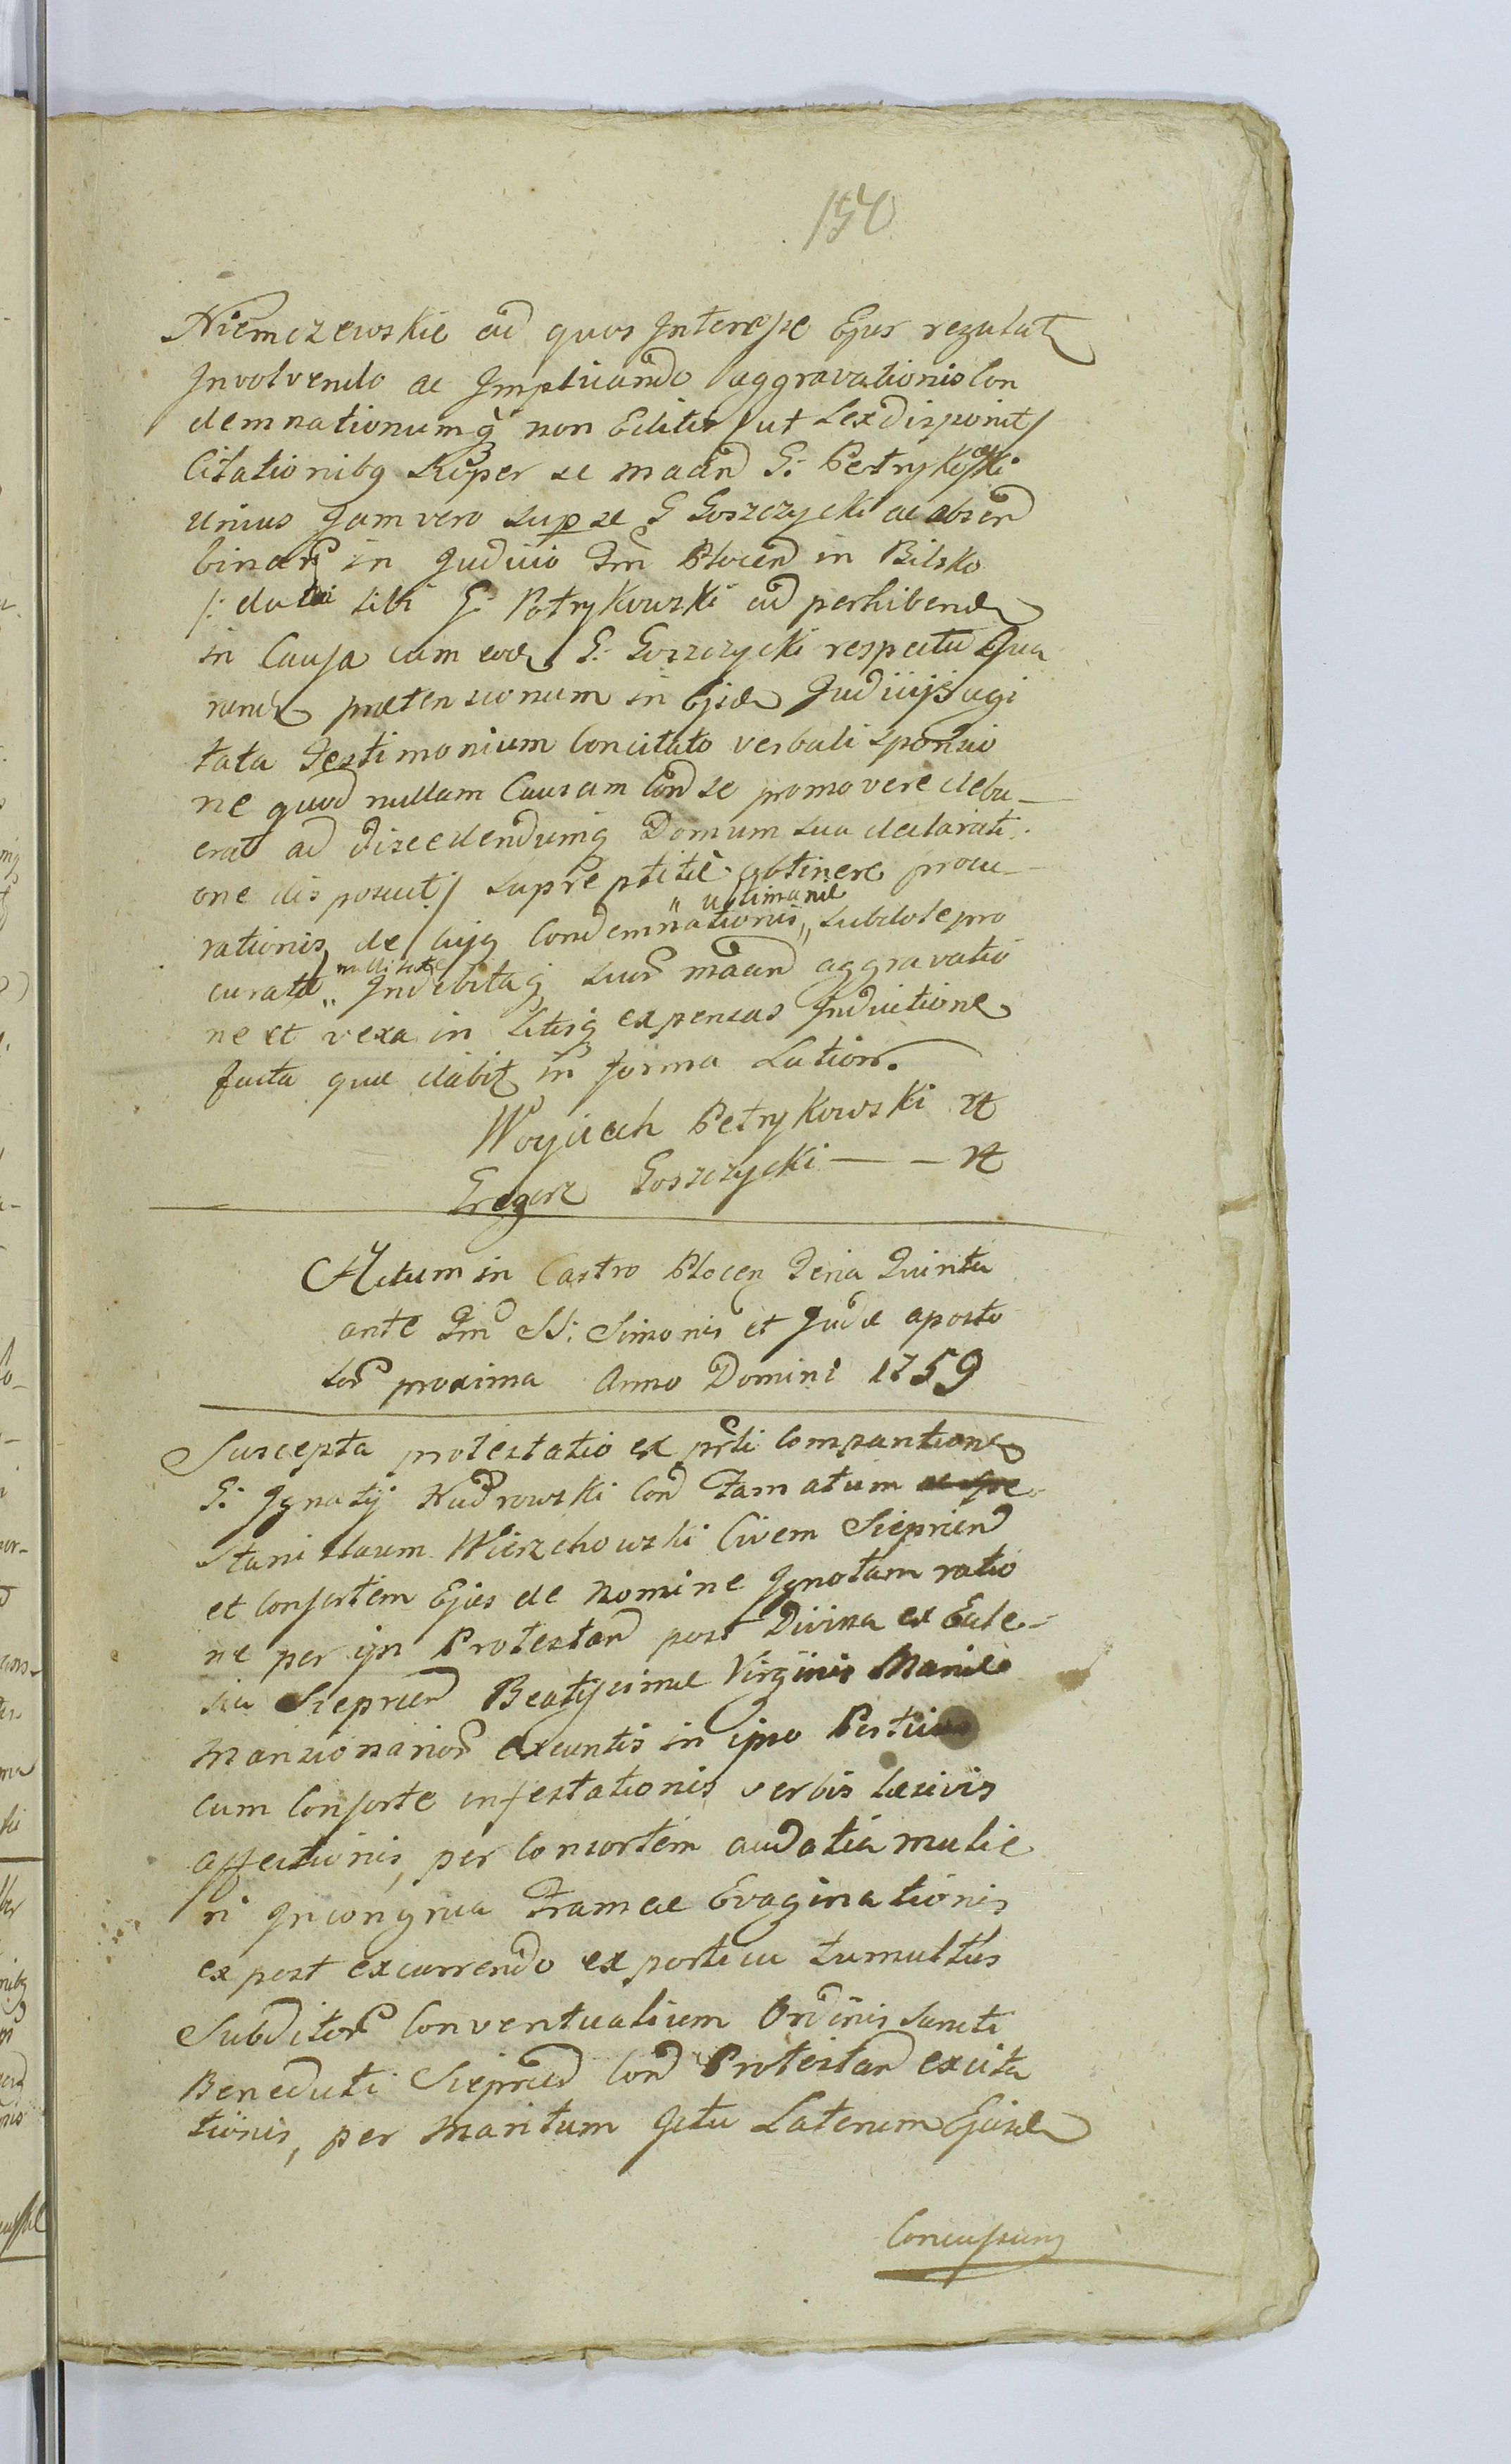 150
Niemczewskie ad quos Interesse Ejus regulat
Involvendo ac Implicando aggravationis Con
demnationumq non Editis / ut Lex disponit /
Citationibq Super se maand G: Petrykowski
unius Jam vero sup se G Goszczycki ac absen
binar in Judicio Tm Plocen in Bilsko
/: data sibi G: Petrykowski ad perhibend
in Causa cum eod G: Goszczycki respectu qua
rund prætensionum in Ejsd Judicijs agi
tata Testimonium Concitato verbali sponsio
ne quod nullam Causam Con se promovere debu-
erat ad discedendumq Domum sua declarati
one disposuit / Suprepticie obtinere procu-
rationis de Cujq Condemnationis „ ultimariæ „ subdole pro
curatæ „ Indebitaq suor maand aggravatio
ne et vexa in Litisq expensas Inductione
facta quæ dabit in forma Lation.
Woyciech Petrykowski
Grzegorz Goszczycki — —
Actum in Castro Plocen Feria Quinta
ante Tm SS: Simonis et Judæ aposto
lor proxima Anno Domini 1759
Suscepta protestatio ex prti Comparitione
G: Ignatij Kudrowski Con Famatum
Stanislaum Wierzchowski Civem Sieprcen
et Consortem Ejus de nomine Ignotam ratio
ne per ipn Protestan post Divina ex Eccle-
sia Sieprcen Beatissimæ Virginis Mariæ
Mansionarior exeuntis in ipso Porticu
cum Consorte infestationis verbis læsivis
affectionis, per Consortem audatia mulie
ri Incongrua Frameæ Evaginationis
ex post excurrendo ex porticu tumultus
Subditor Conventualium Ordinis Sancti
Benedicti Sieprcen Con Protestan excita
tionis, per Maritum Ictu Laterum Ejusd
Concussionq